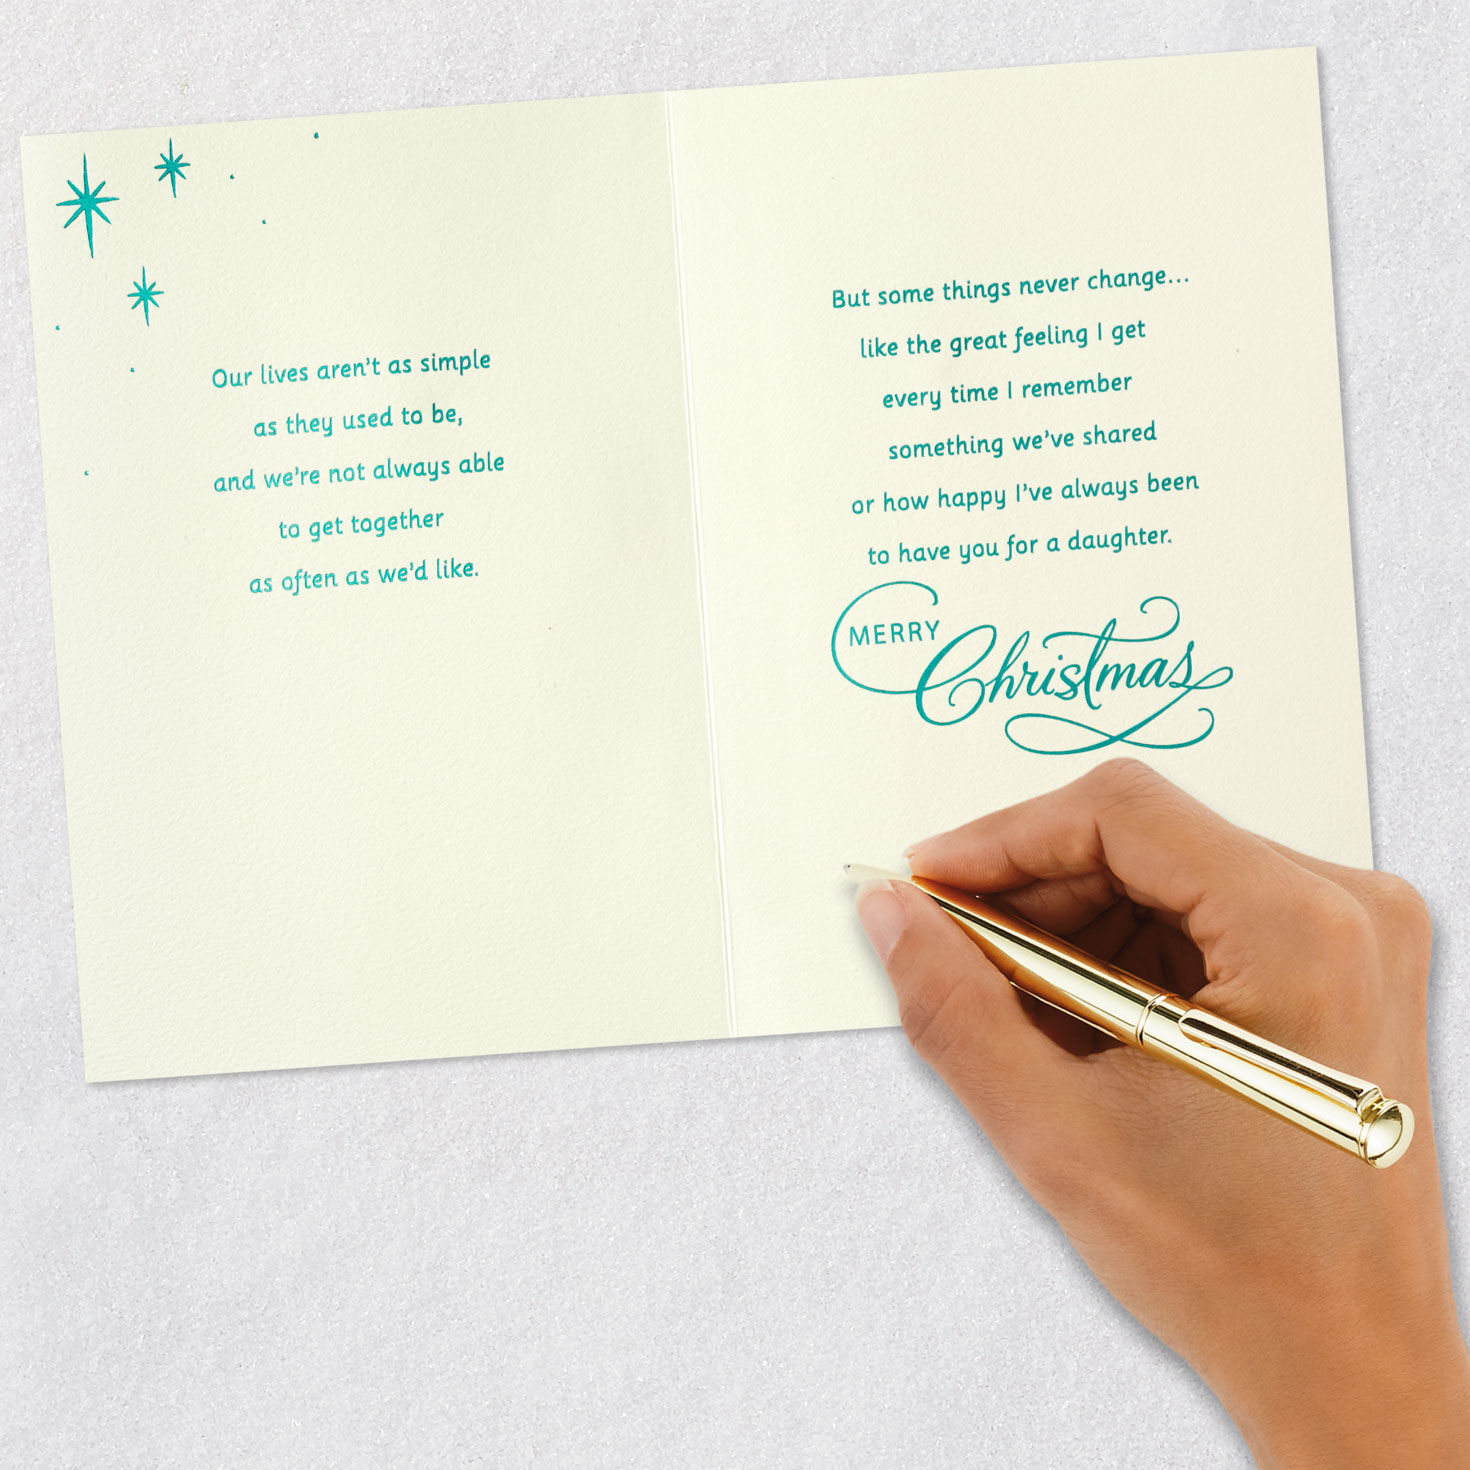 Our lives aren't as simple
as they used to be,
and we're not always able
to get together
as often as we'd like.
But some things never change...
like the great feeling I get
every time I remember
something we've shared
or how happy I've always been
to have you for a daughter.
MERRY
Christmas